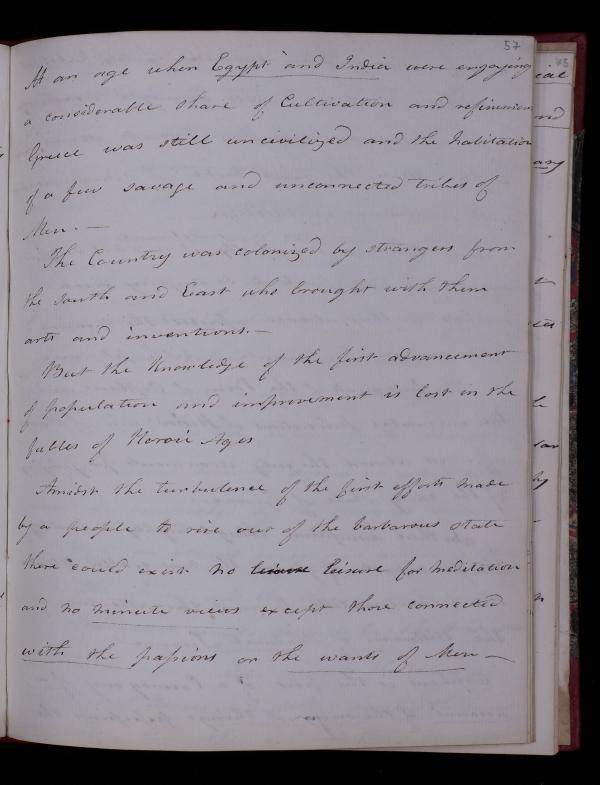 57
At an age when Egypt and India were enjoying
a considerable share of Cultivation and refinement
Greece was still uncivilized and the habitation
of a few savage and unconnected tribes of
Men. —
The Country was colonized by strangers from
the South and East who brought with them
arts and inventions. —
But the Knowledge of the first advancement
of population and improvement is lost in the
fables of Heroic Ages
Amidst the turbulence of the first efforts made
by a people to rise out of the barbarous state
there could exist no leisure Leisure for meditation
and no minute views except those connected
with the passions or the wants of Men —